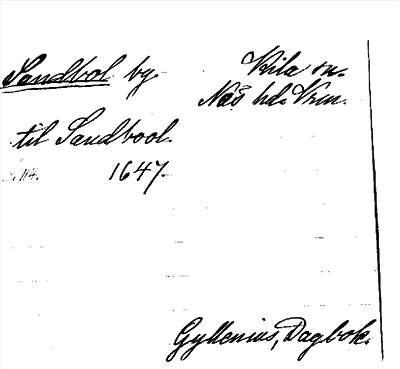 Sandbol by. Kila sn.
Näs hd. Vrm.
til Sandbool.
s. 114. 1647.
Gyllenius, Dagbok.